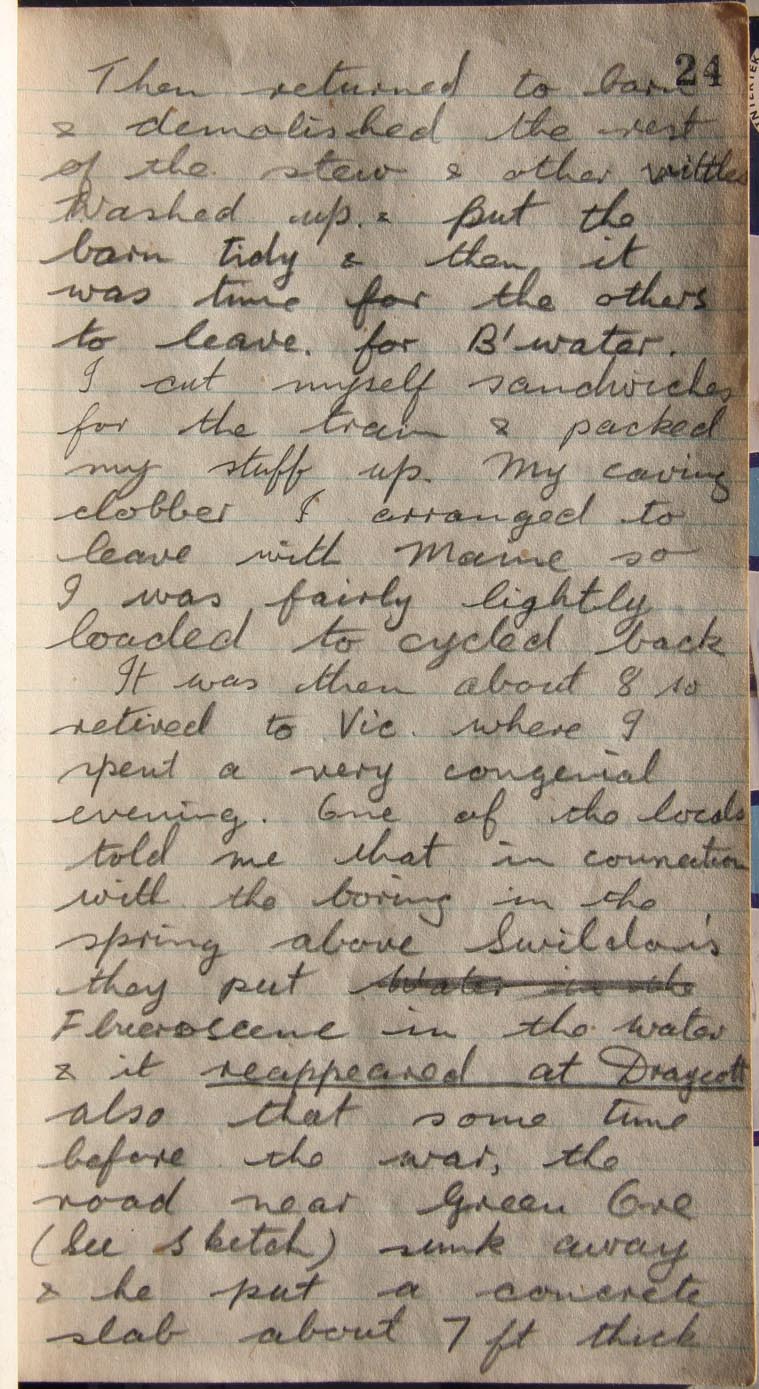 24
Then returned to barn
& demolished the rest
of the stew & other vittles
Washed up. & put the
barn tidy & then it
was time for the others
to leave. for B'water.
I cut myself sandwiches
for the train & packed
my stuff up. My caving
clobber I arranged to
leave with Maine so
I was fairly lightly
loaded to cycled back
It was then about 8 so
retired to Vic. where I
spent a very congenial
evening. One of the locals
told me that in connection
with the boring in the
spring above Swildon's
they put Water in the
Flueroscene in the water
& it reappeared at Draycott
also that some time
before the war, the
road near Green Ore
(See Sketch) sunk away
& he put a concrete
slab about 7 ft thick